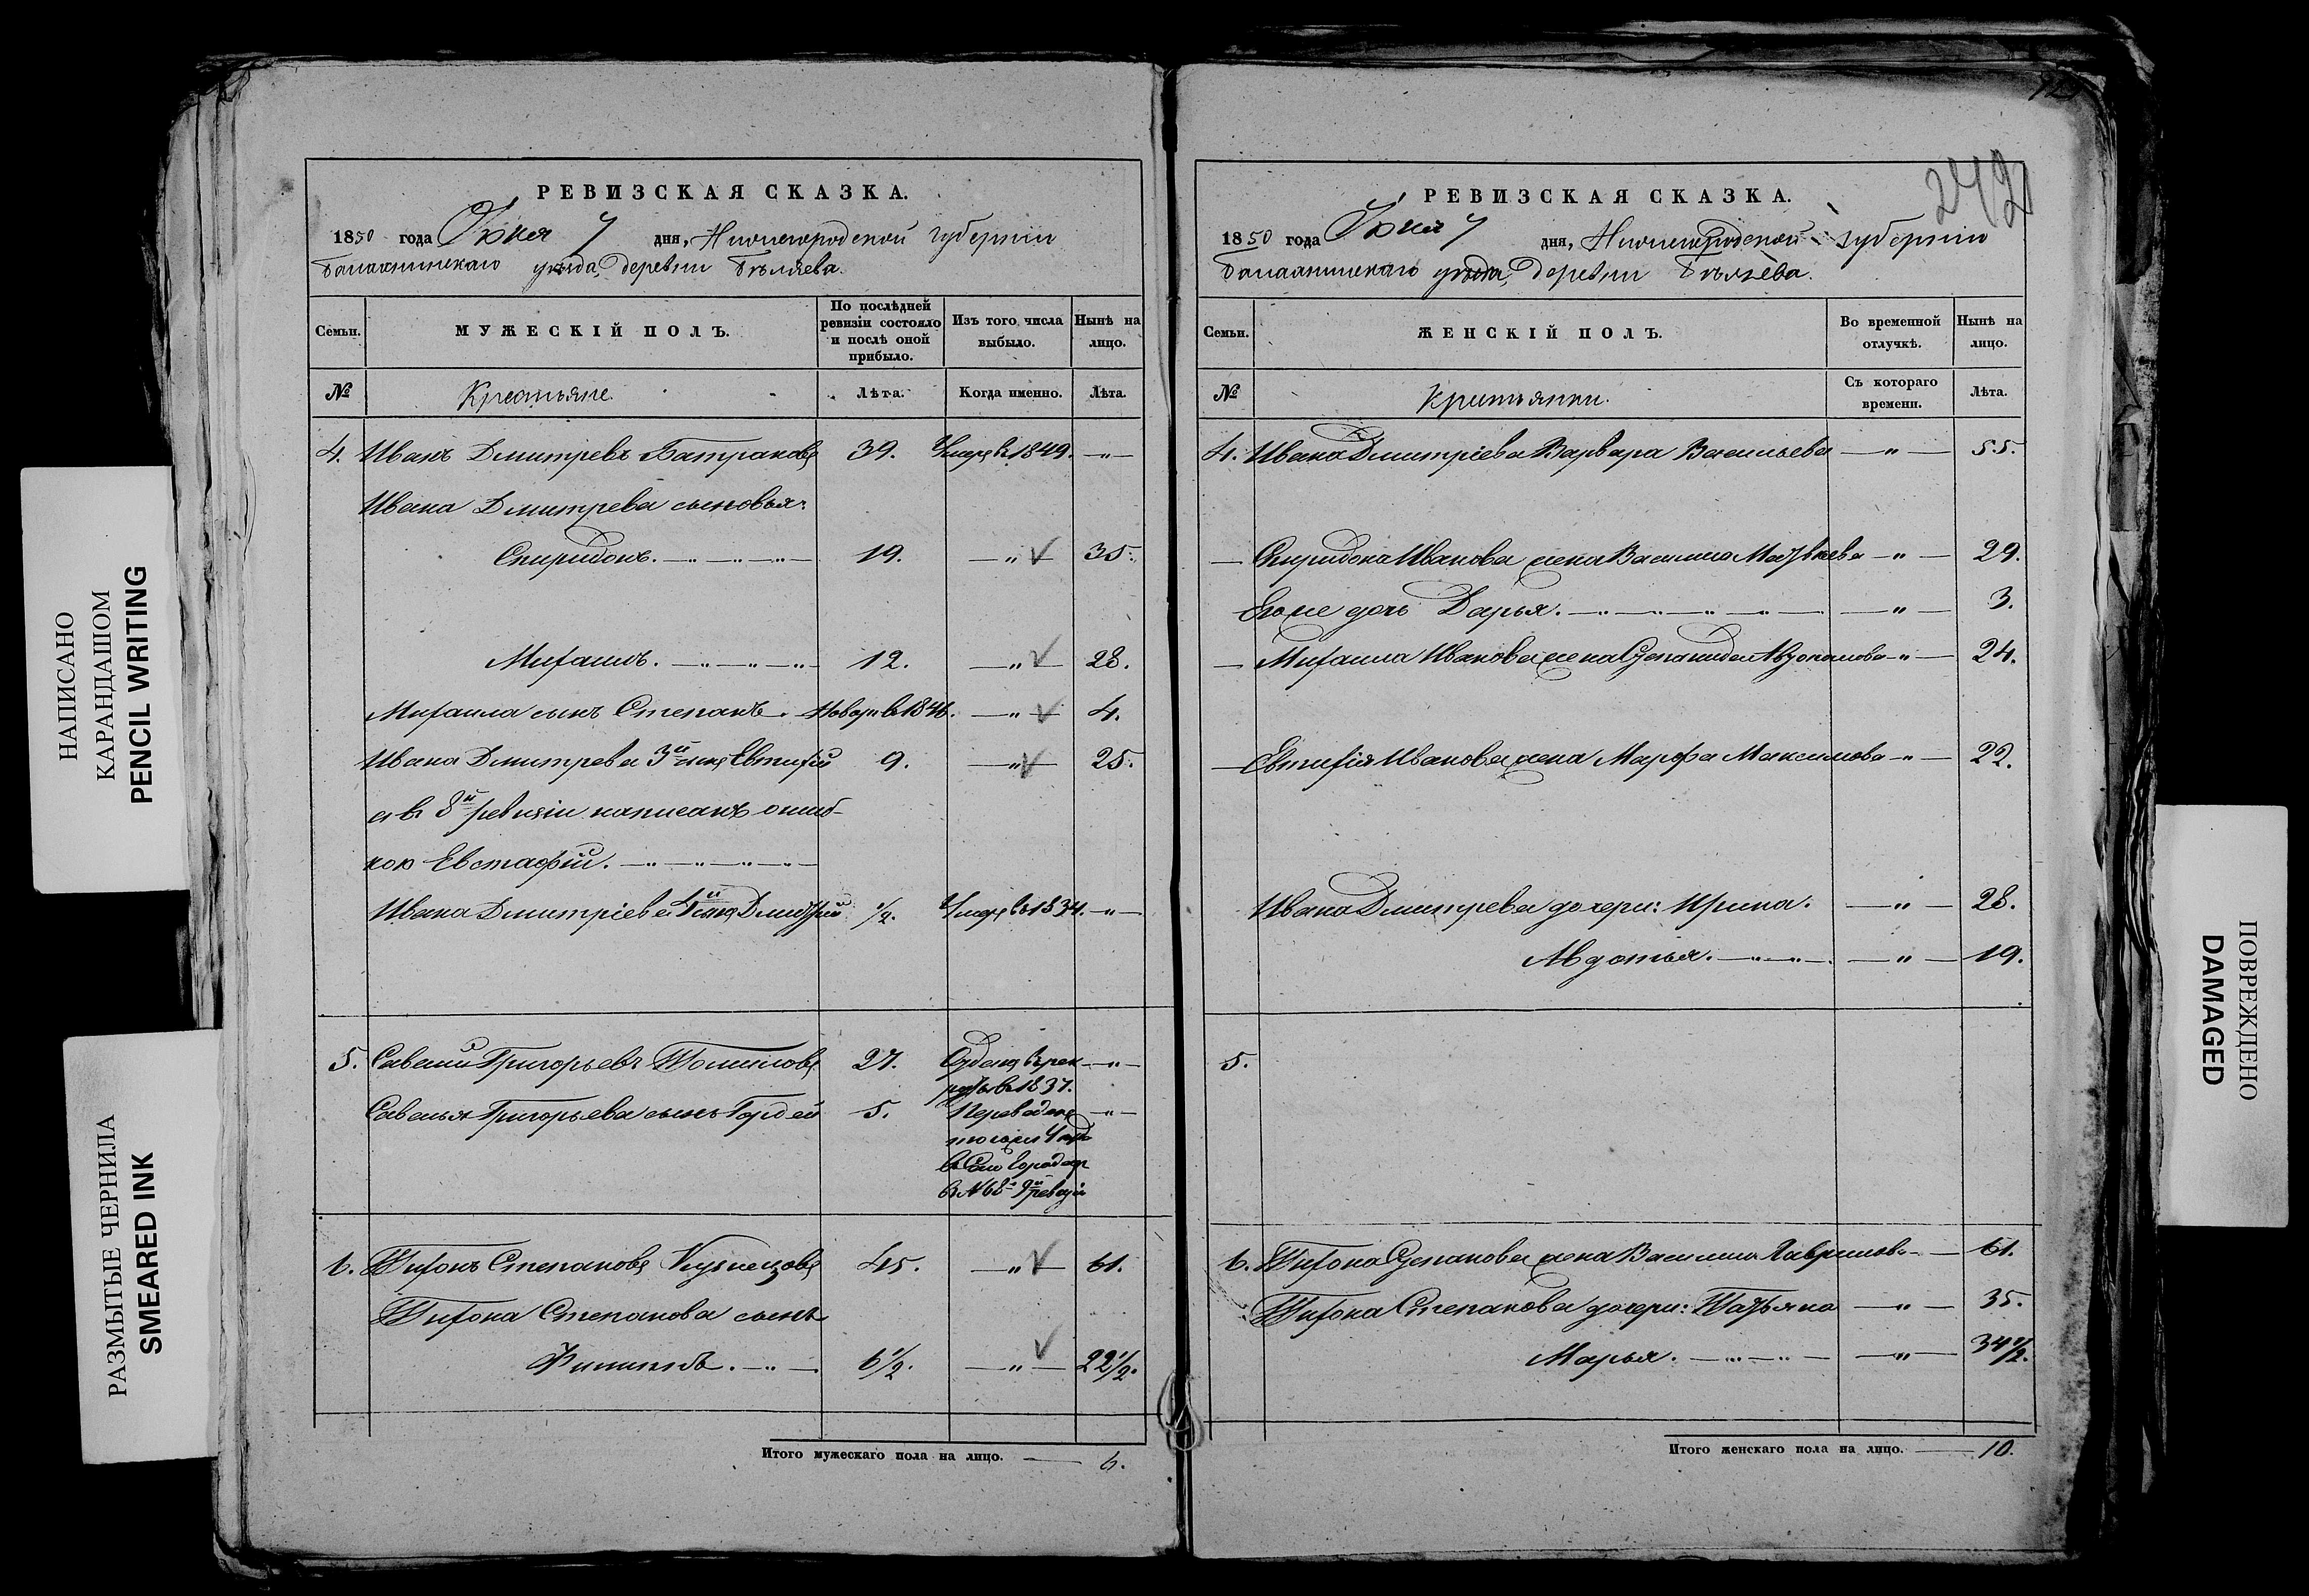 НАПИСАНО
КАРАНДАШОМ
PENCIL WRITING
РАЗМЫТЫЕ ЧЕРНИЛА
SMEARED INK
РЕВИЗСКАЯ СКАЗКА.
1850 года Июня 7 дня, Нижегородской губернии
Балахнинскаго уезда, деревни Беляева.
Семьи. МУЖЕСКІЙ ПОЛЪ. По послѣдней ревизіи состояло и послѣ оной прибыло. Изъ того числа выбыло. Нынѣ на лицо.
№ Крестьяне. Лѣта. Когда именно. Лѣта.
4. Иванъ Дмитревъ Батраковъ 39. Умеръ в 1849. —„—
Ивана Дмитрева сыновья:
Спиридонъ. 19. —„— 35.
Михаилъ. 12. —„— 28.
Михаила сынъ Степанъ. Новорж в 1846. —„— 4.
Ивана Дмитрева 3й сынъ Евтифій 9. —„— 25.
а в 8й ревизіи написанъ ошиб-
кою Евстафій.
Ивана Дмитріева сынъ Дмитрій 1/2. Умеръ в 1834. —„—
5. Савелій Григорьевъ Томиловъ 27. Отданъ в рек- —„—
руты в 1837.
Савелья Григорьева сынъ Гордей 5. Переведенъ —„—
6. Тихонъ Степановъ Кузнецовъ 45. —„— 61.
Тихона Степанова сынъ
Филиппъ. 6 1/2. —„— 22 1/2.
Итого мужескаго пола на лицо. 6.
242
РЕВИЗСКАЯ СКАЗКА.
1850 года Июня 7 дня, Нижегородской губернии
Балахнинскаго уезда, деревни Беляева.
Семьи. ЖЕНСКІЙ ПОЛЪ. Во временной отлучкѣ. Нынѣ на лицо.
№ Крестьянки. Съ котораго времени. Лѣта.
4. Ивана Дмитріева Варвара Васильева —„— 55.
Спиридона Иванова жена Василиса Матвеева —„— 29.
Его же дочь Дарья. —„— 3.
Михаила Иванова жена Степанида Автономова —„— 24.
Евтифія Иванова жена Марфа Максимова —„— 22.
Ивана Дмитрева дочери: Ирина. —„— 28.
Авдотья. —„— 19.
5.
6. Тихона Степанова жена Василиса Гаврилова — 61.
Тихона Степанова дочери: Татьяна —„— 35.
Марья. —„— 34 1/2.
Итого женскаго пола на лицо. 10.
ПОВРЕЖДЕНО
DAMAGED